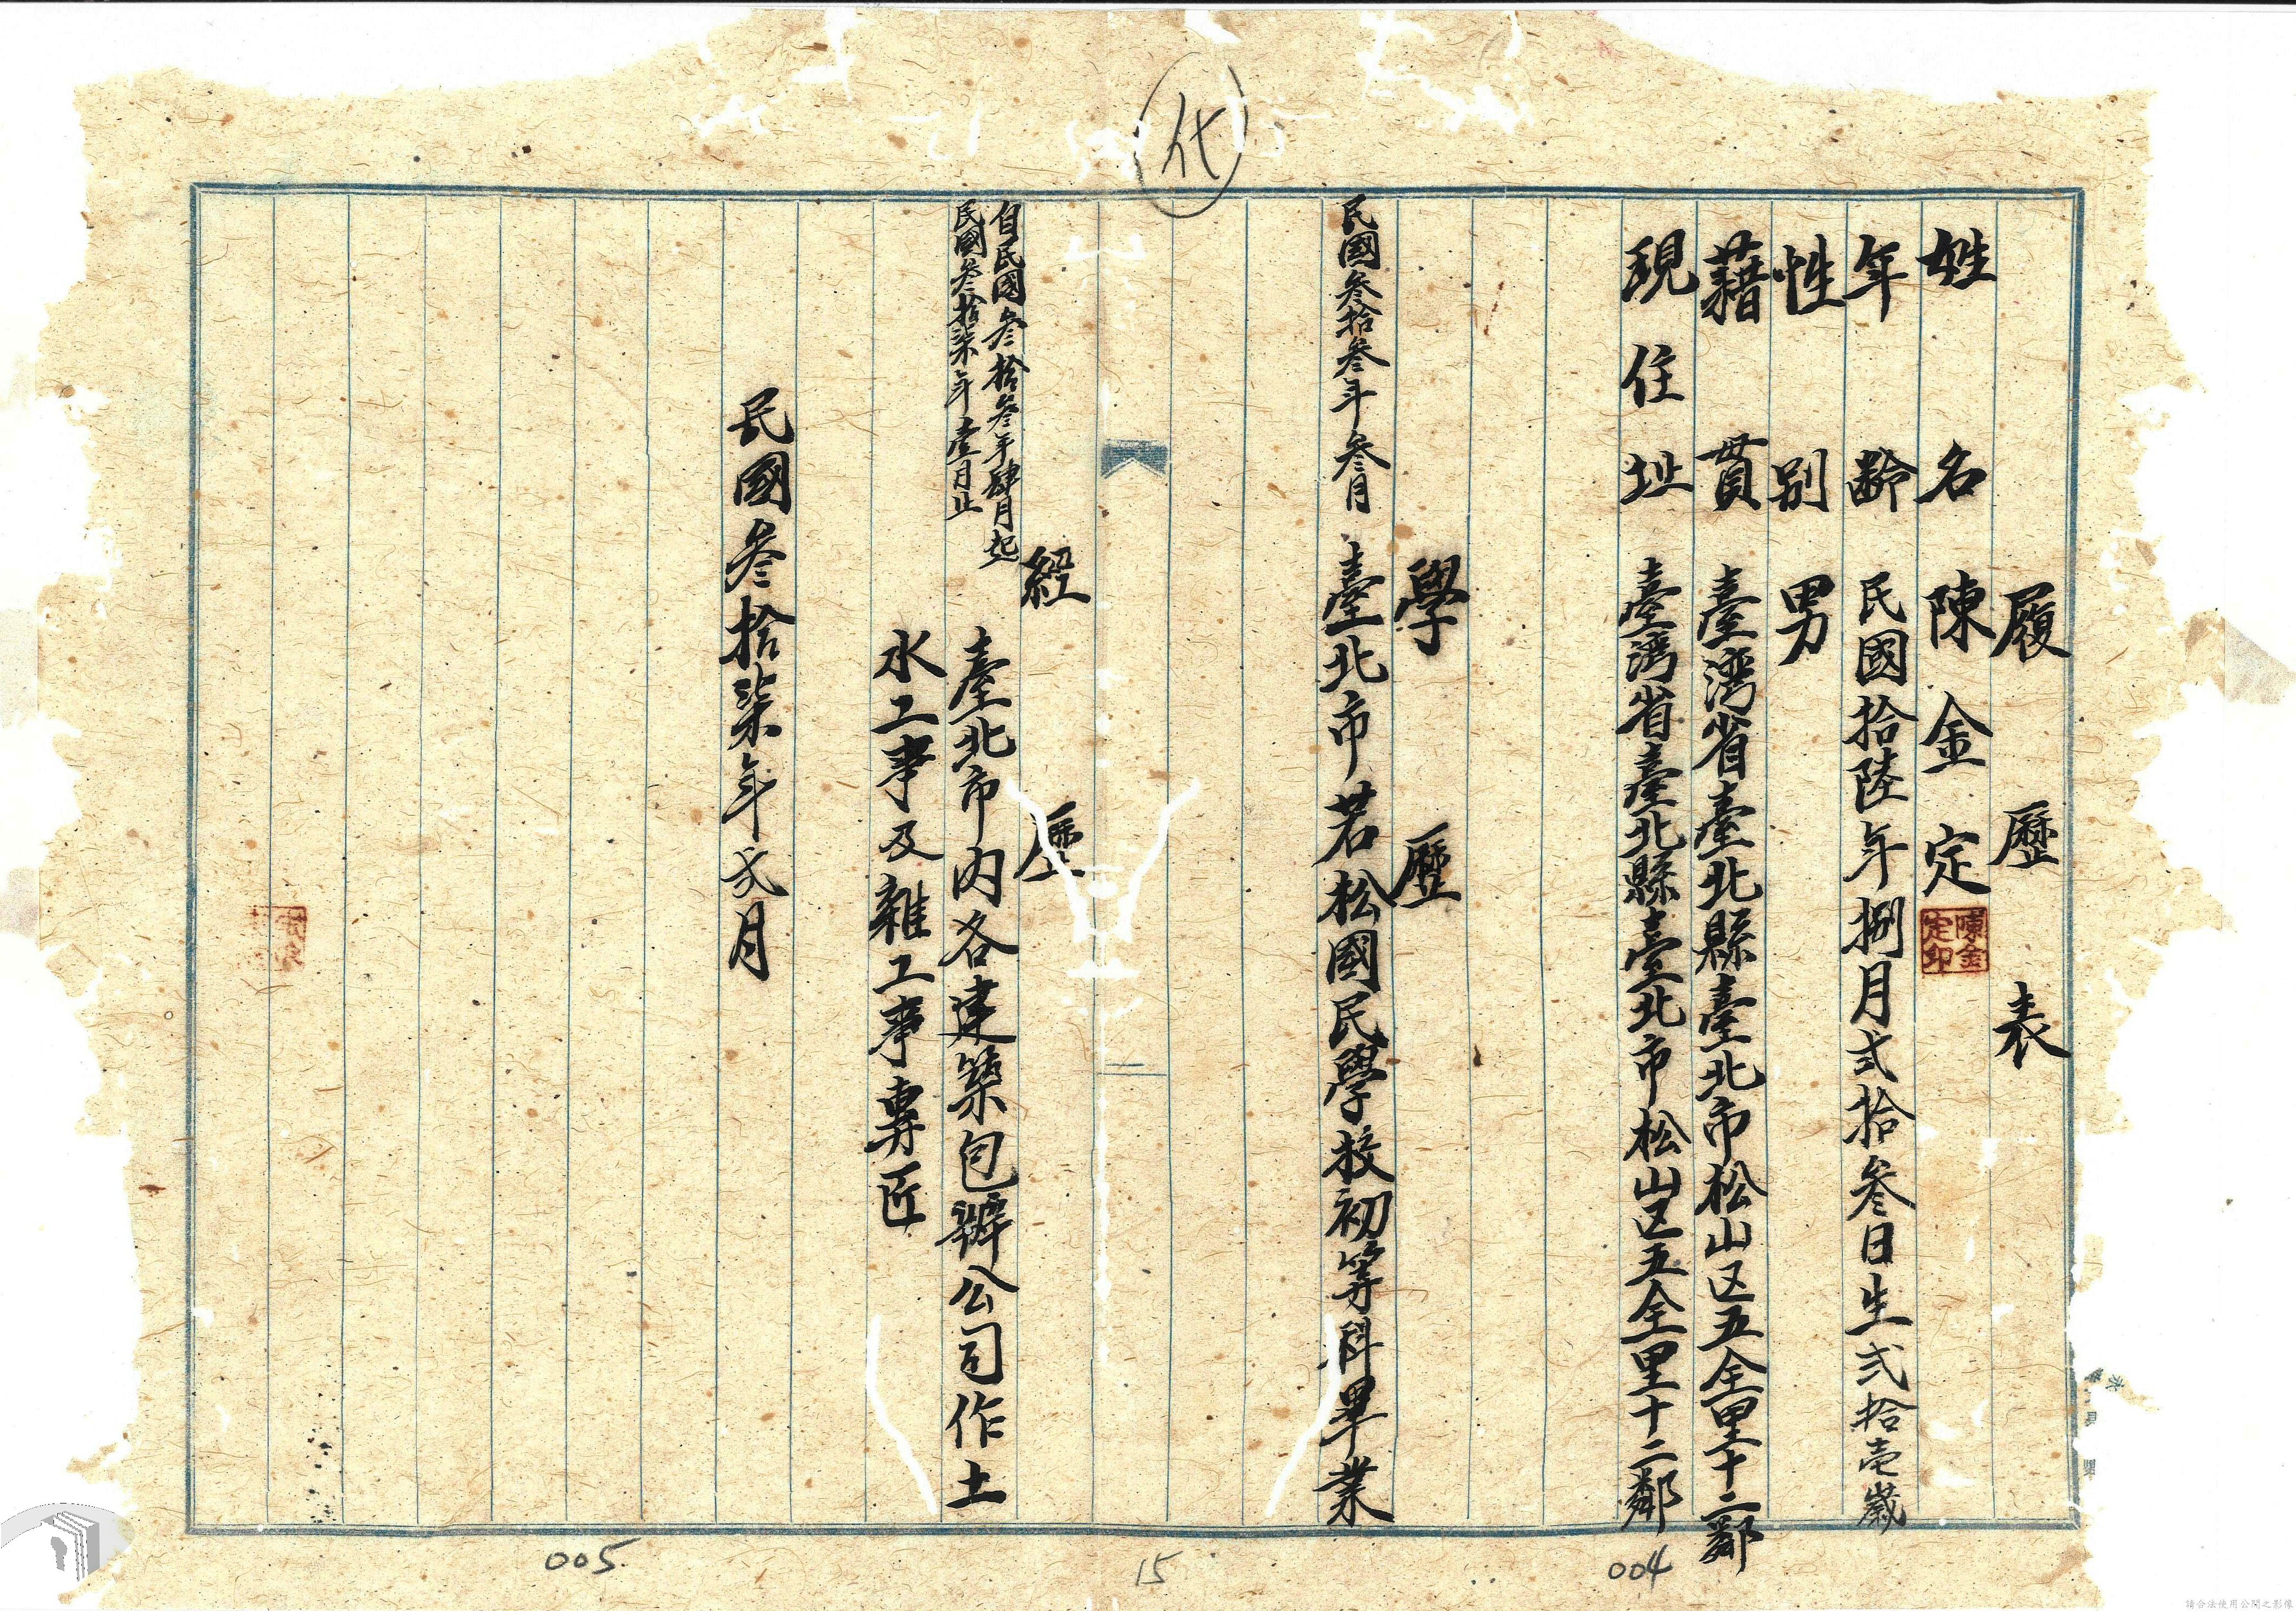 履歷表
姓名 陳金定
陳金定印
年齡 民國拾陸年捌月弍拾叁日生弍拾壱歲
性別 男
藉貫 臺灣省臺北縣臺北市松山区五全里十二鄰
現住址 臺灣省臺北縣臺北市松山区五全里十二鄰
學歷
民國叁拾叁年叁月 臺北市若松國民學校初等科畢業
代
經歷
自民國叁拾叁年肆月起
民國叁拾柒年壹月止
臺北市內各建築包辦公司作土
水工事及雜工事專匠
民國叁拾柒年弍月
004
15
005
請合法使用公開之影像